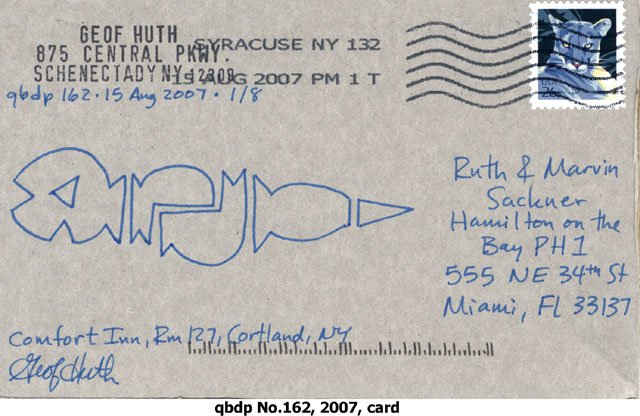 GEOF HUTH
875 CENTRAL PKWY.
SCHENECTADY NY 12309
SYRACUSE NY 132
15 AUG 2007 PM 1 T
USA
26c
qbdp 162 · 15 Aug 2007 · 1/8
Ruth & Marvin
Sackner
Hamilton on the
Bay PH1
555 NE 34th St
Miami, FL 33137
Comfort Inn, Rm 127, Cortland, NY
Geof Huth
qbdp No.162, 2007, card